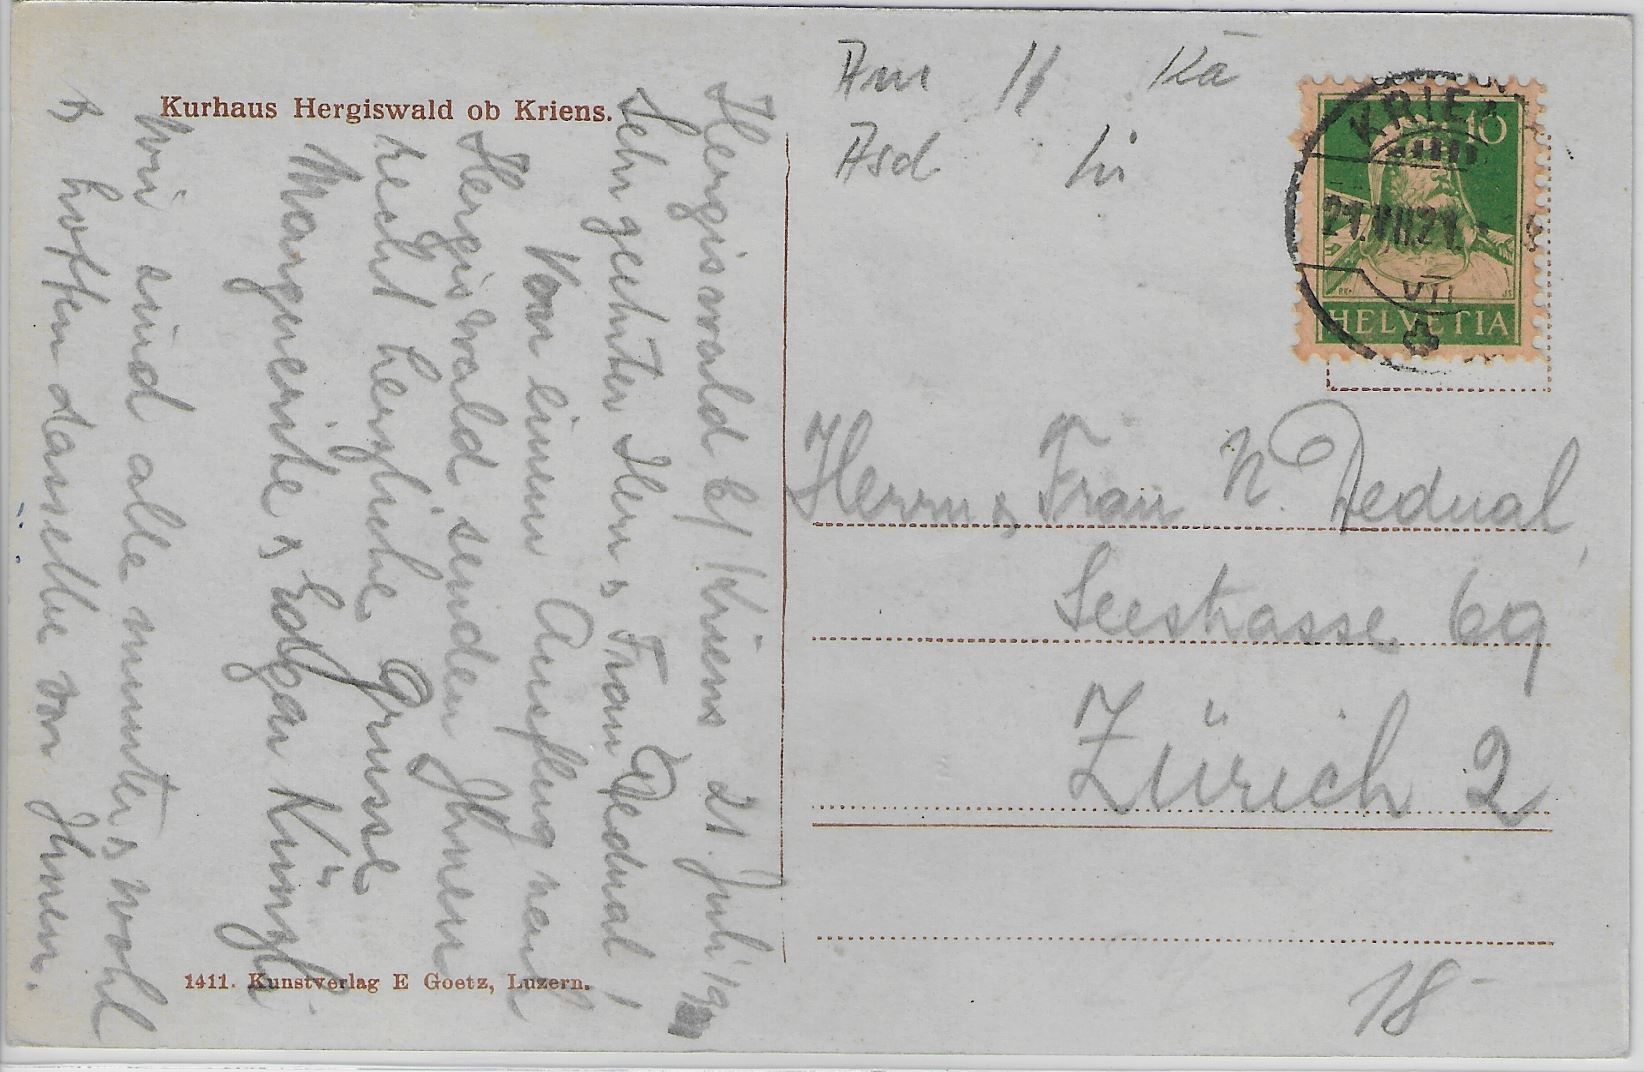 Kurhaus Hergiswald ob Kriens.
Hergiswald b/ Kriens 21. Juli
Sehr geehrter Herr & Frau Dedual!
Von einem Ausflug nach
Hergiswald, senden Ihnen
recht herzliche Grüsse
Marguerite & Edgar Künzli.
Wir sind alle munter & wohl
& hoffen dasselbe von Ihnen.
1411. Kunstverlag E Goetz, Luzern.
Am 11 Kā
Asd
KRIENS
10
21.VII.21.
VII
HELVETIA
Herrn & Frau N. Dedual,
Seestrasse 69
Zürich 2
18 -